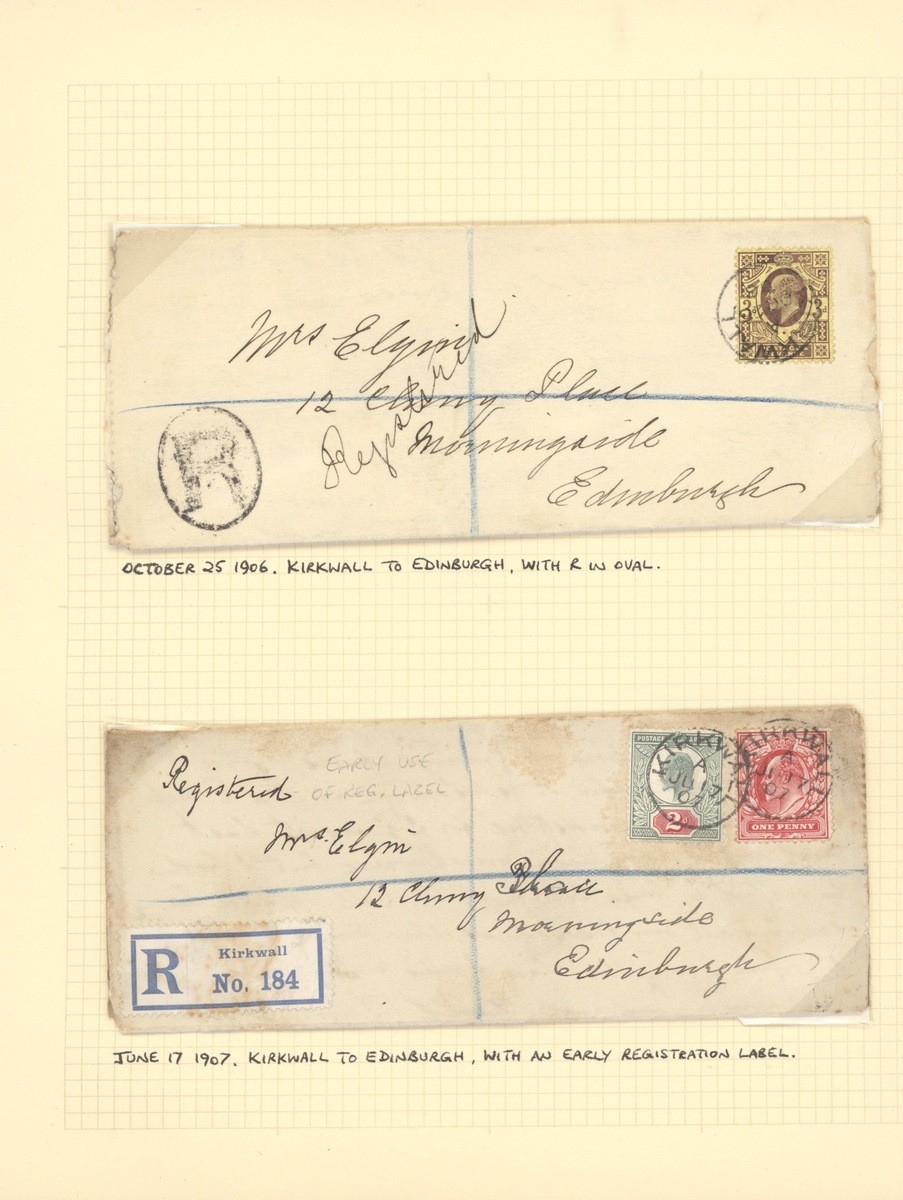 3d 3d
KIRKWALL
Mrs Elgin
Registered
12 Cluny Place
Morningside
Edinburgh
R
OCTOBER 25 1906. KIRKWALL TO EDINBURGH, WITH R IN OVAL.
POSTAGE
KIRKWALL
A
JU 17
07
KIRKWALL
A
JU 17
07
2d
ONE PENNY
Registered
EARLY USE
OF REG. LABEL
Mrs. Elgin
12 Cluny Place
Morningside
Edinburgh
R Kirkwall
No. 184
JUNE 17 1907. KIRKWALL TO EDINBURGH, WITH AN EARLY REGISTRATION LABEL.